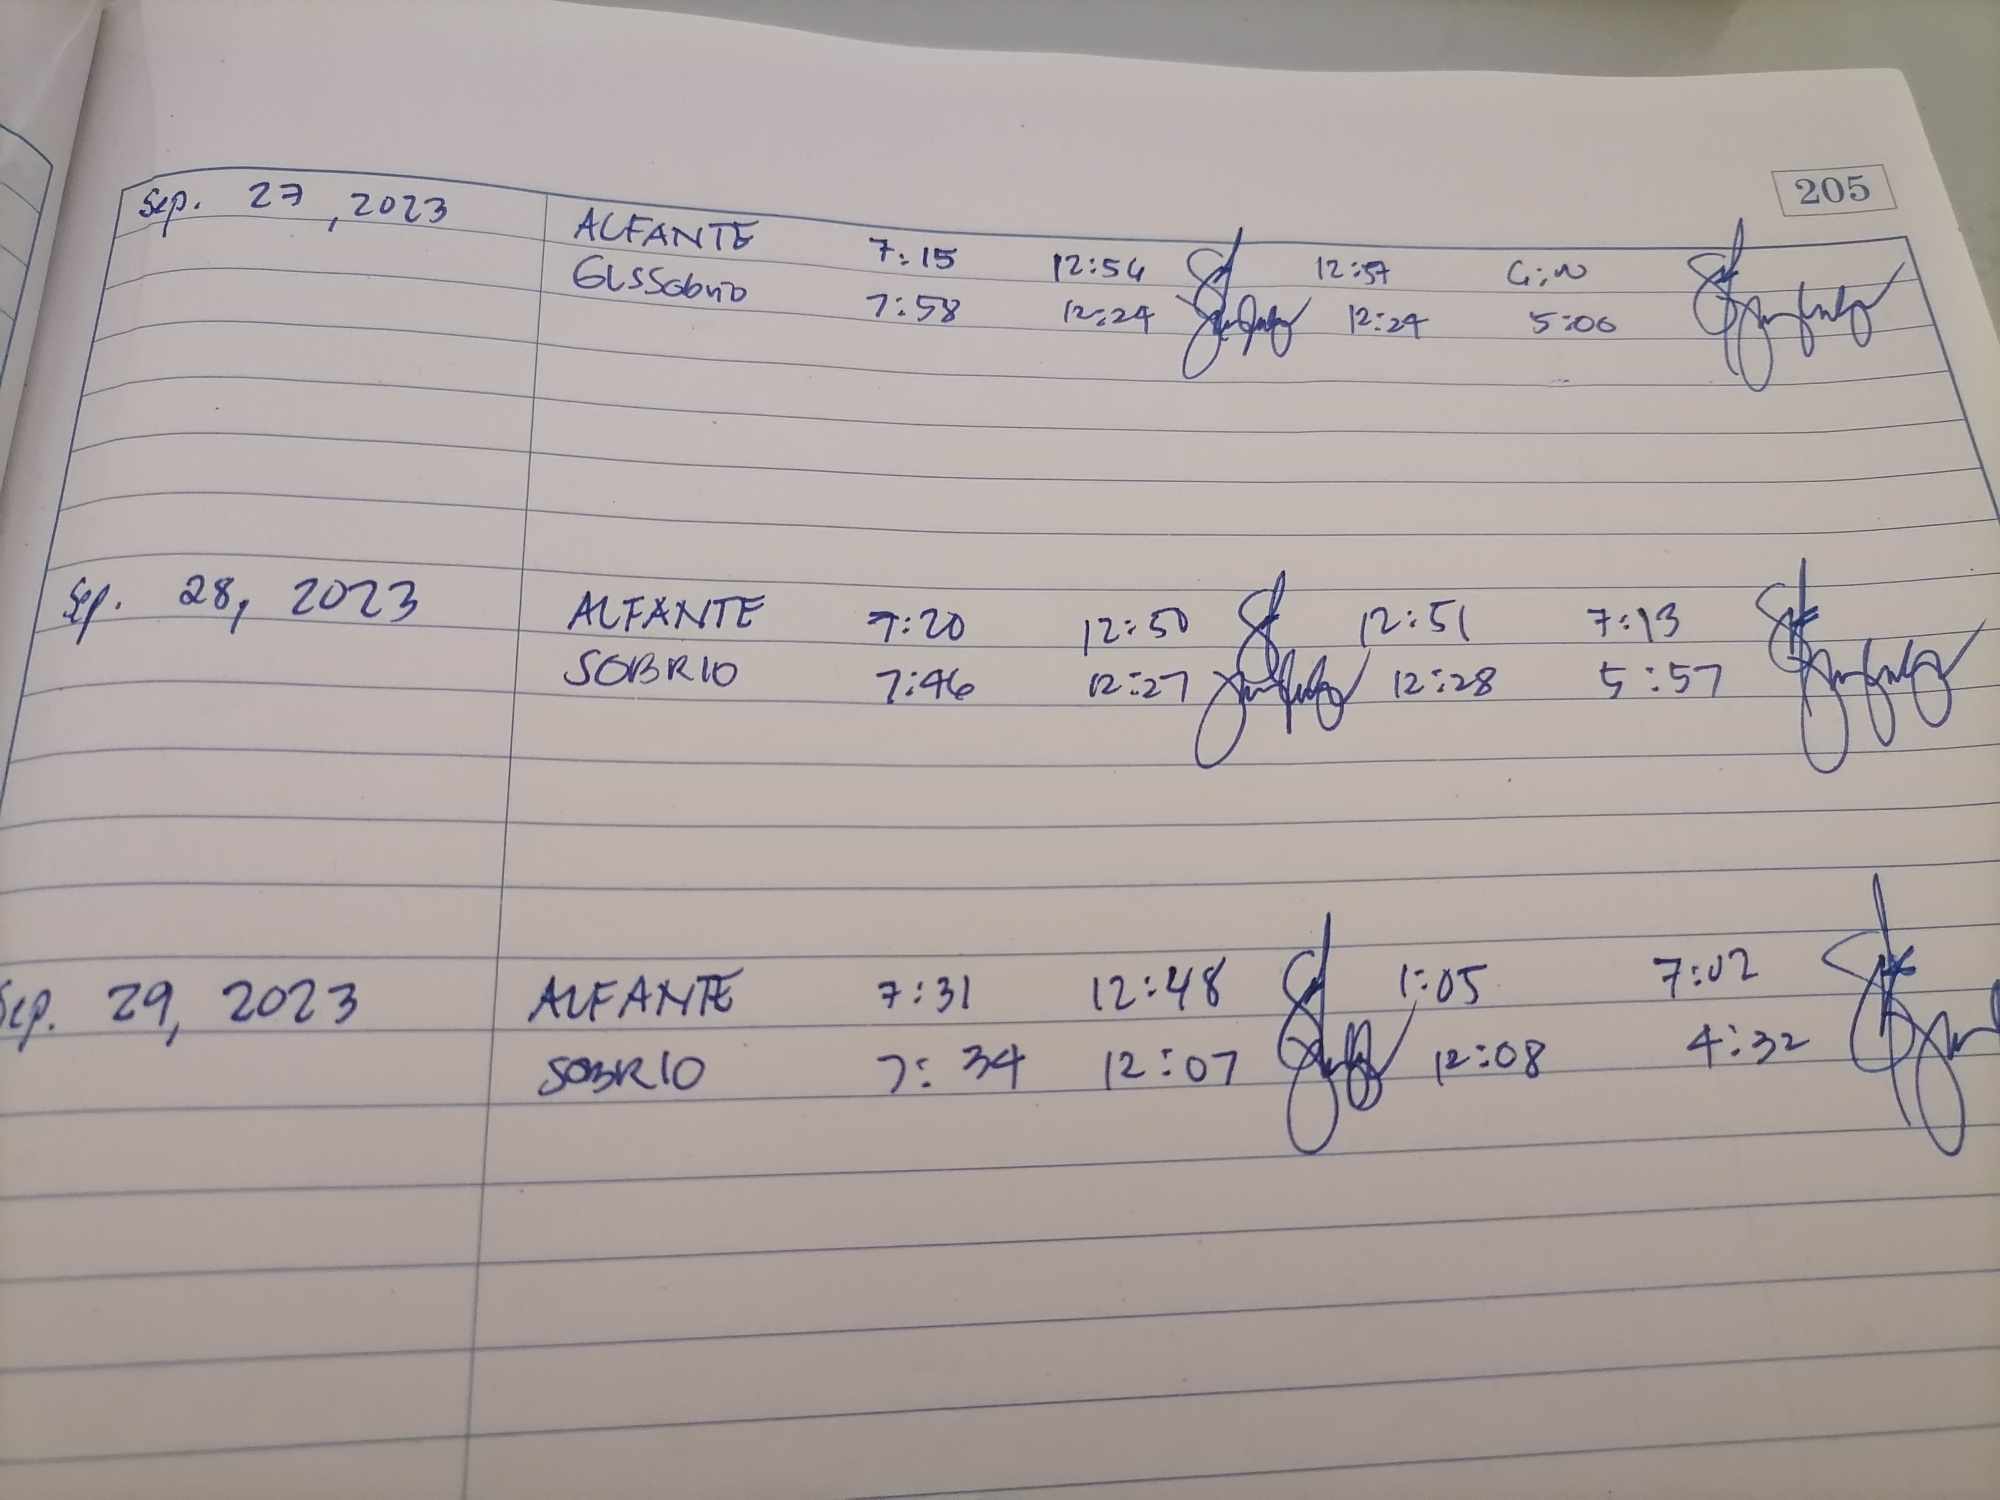 205
Sep. 27, 2023 ALFANTE 7:15 12:54 12:57
GLSSobrio 7:58 12:24 12:24 5:06
Sep. 28, 2023 ALFANTE 7:20 12:50 12:51 7:13
SOBRIO 7:46 12:27 12:28 5:57
Sep. 29, 2023 ALFANTE 7:31 12:48 1:05 7:02
SOBRIO 7:34 12:07 12:08 4:32